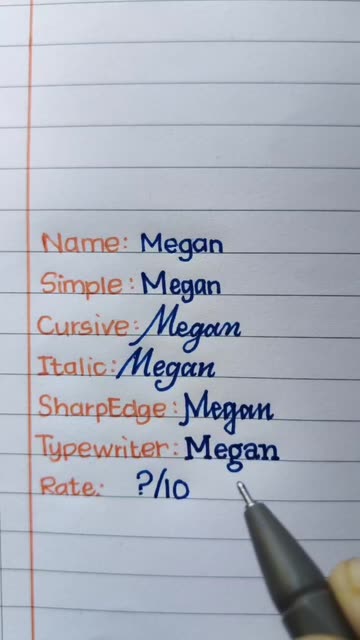 Name: Megan
Simple: Megan
Cursive: Megan
Italic: Megan
SharpEdge: Megan
Typewriter: Megan
Rate: ?/10